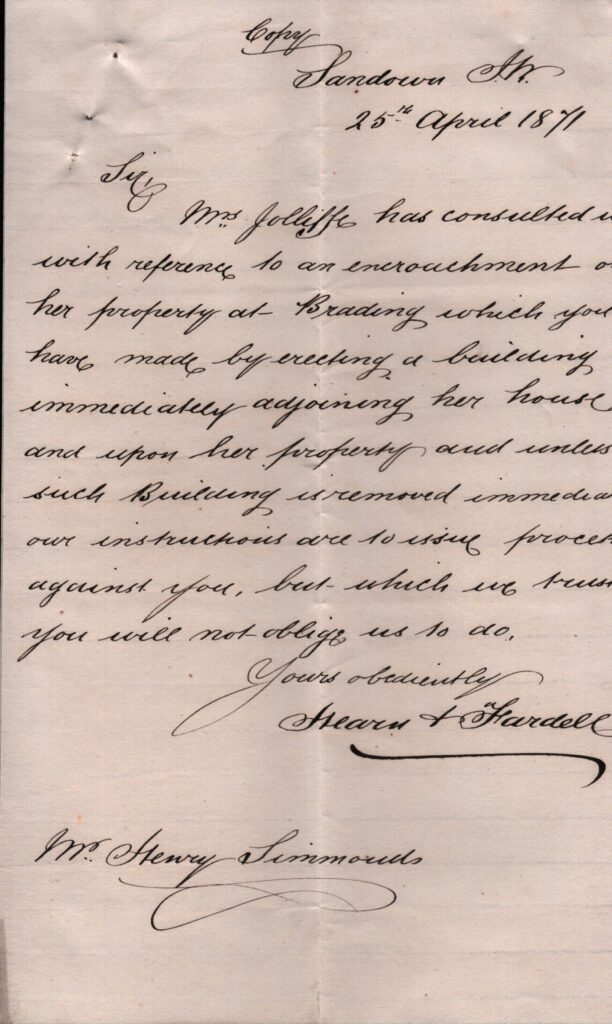 Copy
Sandown I.W.
25th April 1871
Sir,
Mrs Jolliffe has consulted
with reference to an encroachment
her property at Brading which you
have made by erecting a building
immediately adjoining her house
and upon her property and unless
such Building is removed
our instructions are to issue process
against you, but which we trust
you will not oblige us to do.
Yours obediently
Hearn & Fardell
Mr. Henry Simmonds